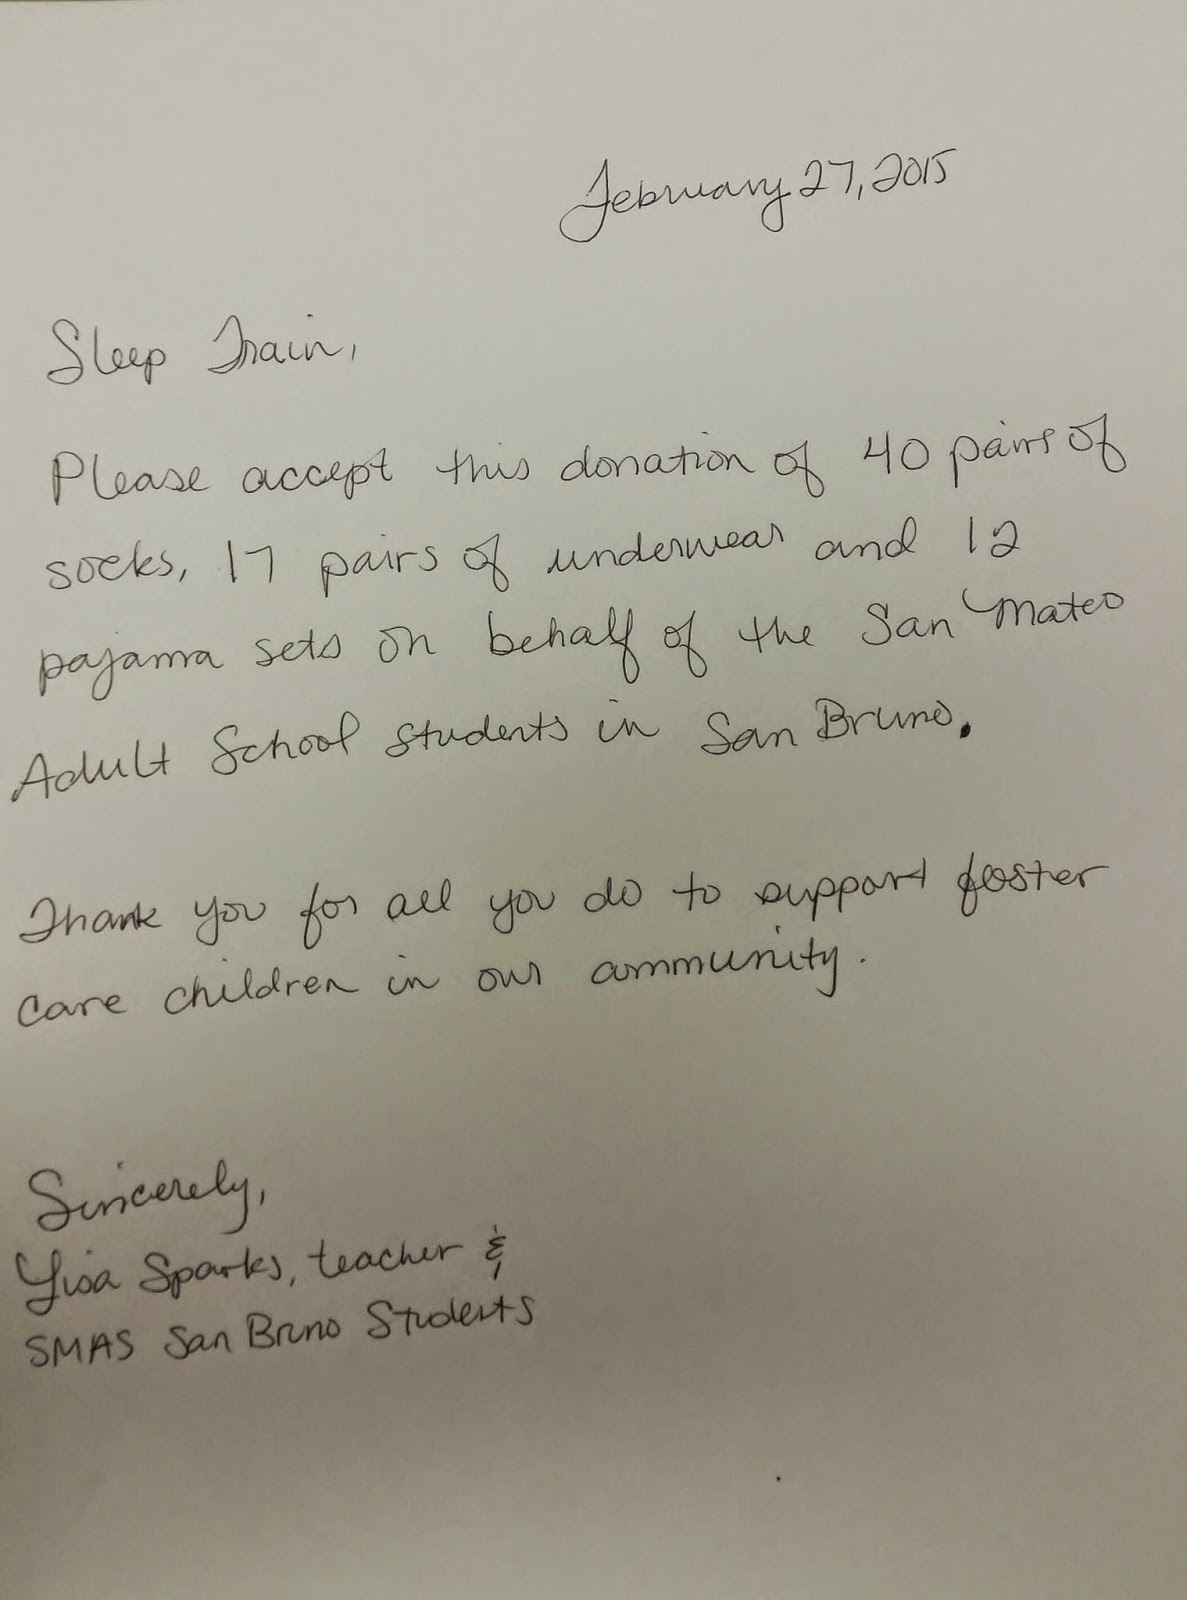 February 27, 2015
Sleep Train,
Please accept this donation of 40 pairs of
socks, 17 pairs of underwear and 12
pajama sets on behalf of the San Mateo
Adult School students in San Bruno.
Thank you for all you do to support foster
care children in our community.
Sincerely,
Lisa Sparks, teacher &
SMAS San Bruno Students